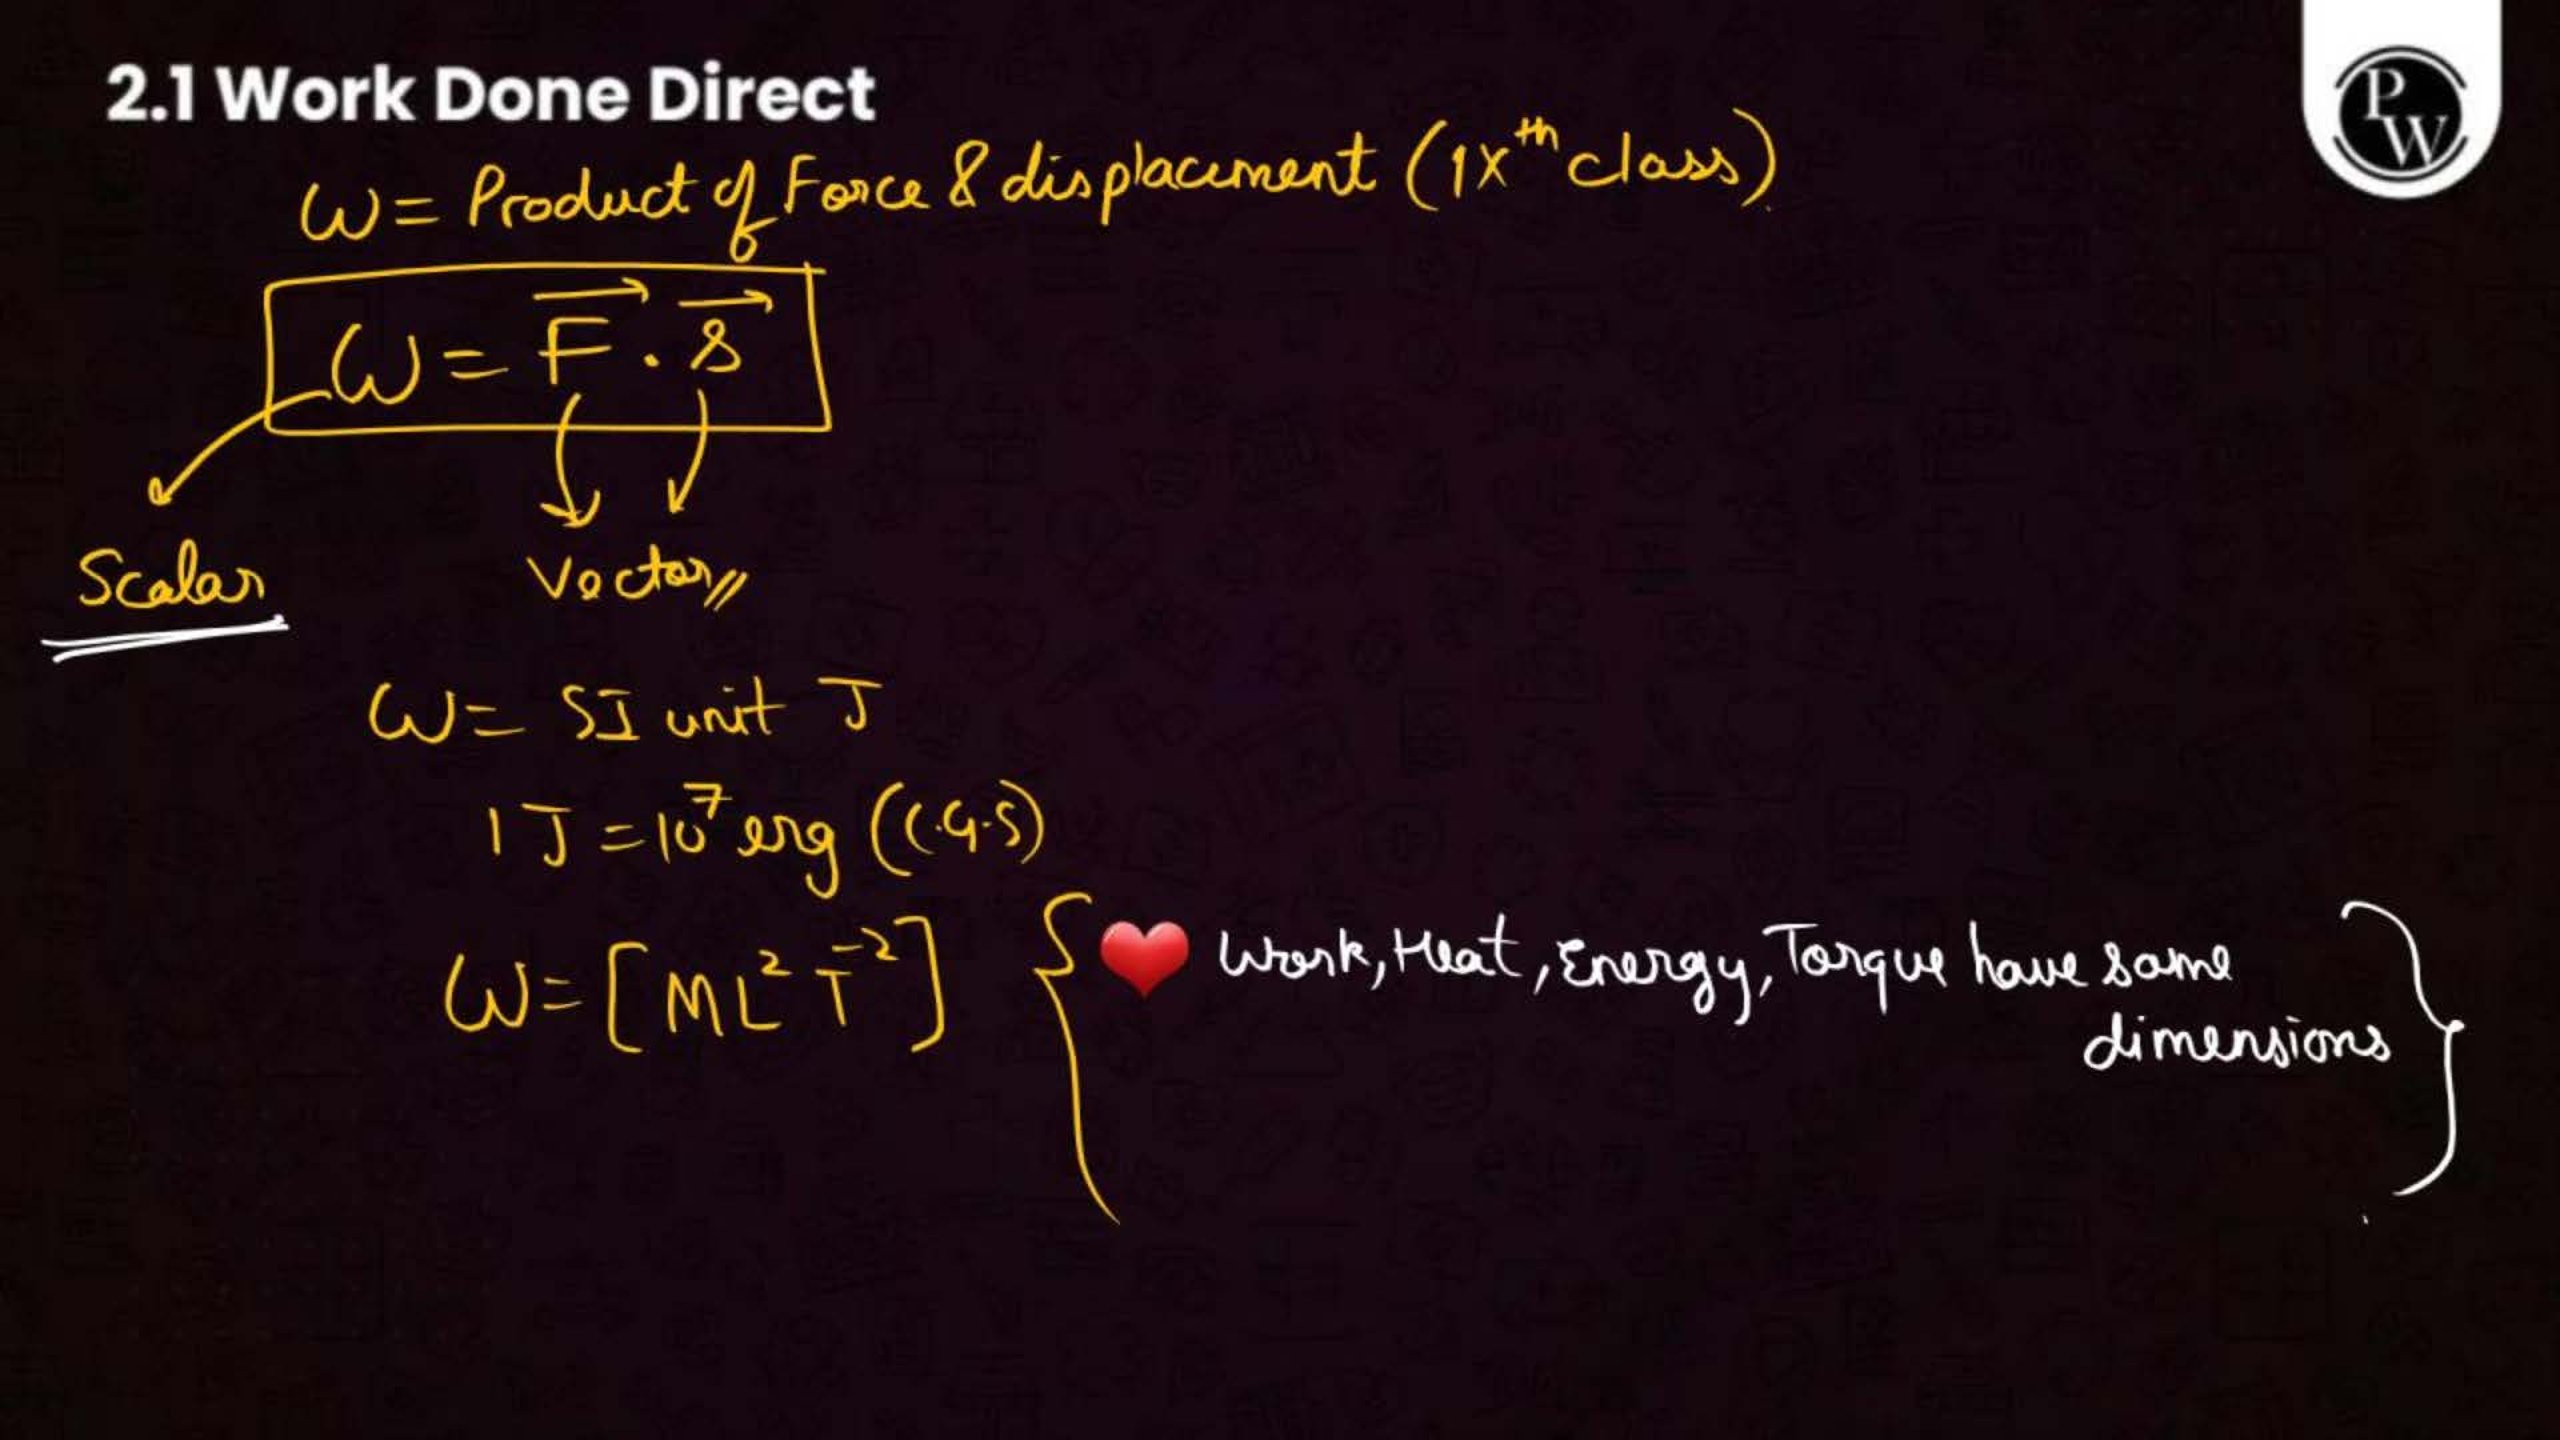 2.1 Work Done Direct
PW
W = Product of Force & displacement (IXth class)
W = F⃗ . s⃗
Scalar
Vector
W = SI unit J
1 J = 10⁷ erg (C.G.S)
W = [ML²T⁻²]
❤️ Work, Heat, Energy, Torque have same
dimensions